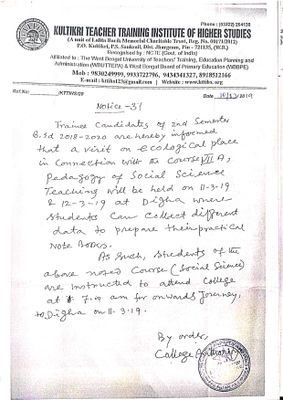 Phone : (03221) 254130
KULTIKRI TEACHER TRAINING INSTITUTE OF HIGHER STUDIES
(A unit of Lalita Bach Memorial Charitable Trust, Reg. No.
P.O. Kultikri, P.S. Sankrail, Dist. Jhargram, Pin - 721135, (W.B.)
Recognised by : NCTE (Govt. of India)
Affiliated to : The West Bengal University of Teachers' Training, Education Planning and
Administration (WBUTTEPA) & West Bengal Board of Primary Education (WBBPE)
Mob : 9830249999, 9933722796, 9434341327, 8918512166
E-mail : kttihs123@gmail.com Website : www.kttihs.org
Ref. No. /KTTIHS/20 Date 10/03/2019
Notice-31
Trainee Candidates of 2nd Semester
B.Ed 2018-2020 are hereby informed
that a visit on ecological place
in Connection with the Course VII A,
Pedagogy of Social Science
Teaching will be held on 11-3-19
& 12-3-19 at Digha where
students can collect different
data to prepare their practical
Note Books.
As such, students of the
above noted Course (Social Science)
are instructed to attend College
at 7.00 am for onwards Journey,
to Digha on 11.3.19.
By order,
College Authority